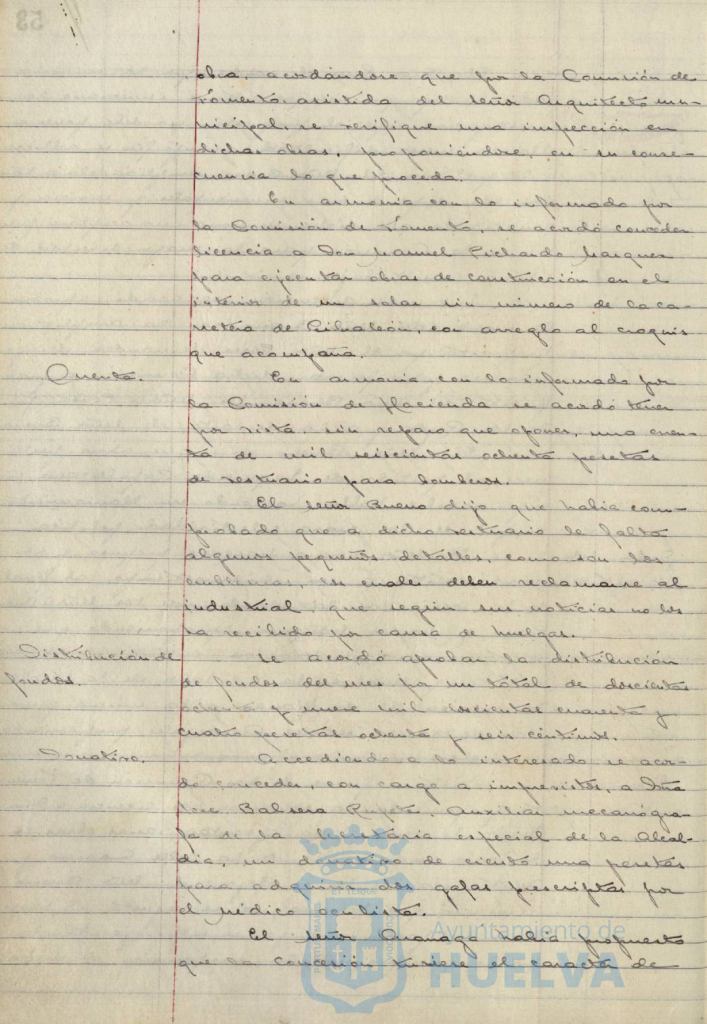 obra, acordándose que por la Comisión de
Fomento, asistida del señor Arquitecto mu-
nicipal, se verifique una inspección en
dichas obras, proponiéndose, en su conse-
cuencia lo que proceda.
En armonia con lo informado por
la Comisión de Fomento, se acordó conceder
licencia a Don Manuel Pichardo Marquez
para ejecutar obras de construcción en el
interior de un solar sin número de la ca-
rretera de Gibraleón, con arreglo al croquis
que acompaña.
Cuenta.
En armonia con lo informado por
la Comisión de Hacienda se acordó tener
por vista, sin reparo que oponer, una cuen-
ta de mil seiscientas ochenta pesetas
de vestuario para bomberos.
El señor Bueno dijo que habia com-
probado que a dicho vestuario le faltó
algunos pequeños detalles, como son los
emblemas, los cuales deben reclamarse al
industrial que según sus noticias no los
ha recibido por causa de huelgas.
Distribución de
fondos.
Se acordó aprobar la distribución
de fondos del mes por un total de doscientas
ochenta y nueve mil doscientas cuarenta y
cuatro pesetas ochenta y seis céntimos.
Donativo.
Accediendo a lo interesado se acor-
dó conceder, con cargo a imprevistos, a Dña
Balsera Auxiliar mecanógra-
fa de la Secretária especial de la Alcal-
dia, un donativo de ciento una pesetas
para adquirir dos gafas prescriptas por
el médico oculista.
El señor había propuesto
que la concesión tuviese el caracter de
Ayuntamiento de
HUELVA